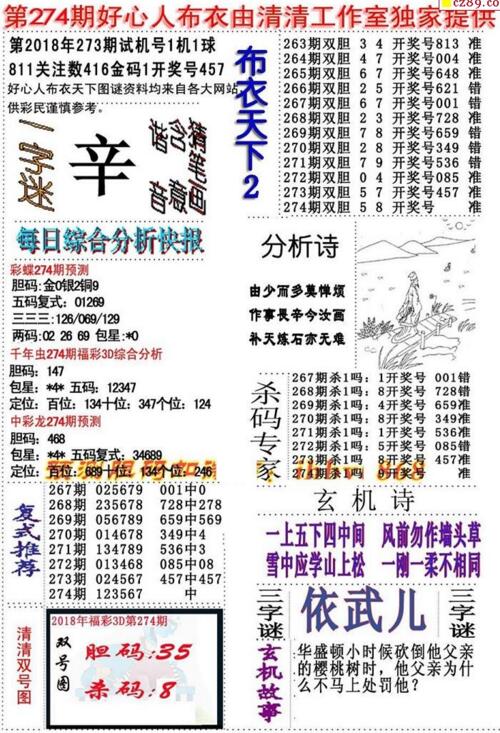 cz89.co
第274期好心人布衣由清清工作室独家提供
第2018年273期试机号1机1球
811关注数416金码1开奖号457
好心人布衣天下图谜资料均来自各大网站
供彩民谨慎参考。
一字迷
辛
猜笔画
含意
谐音
布衣天下2
263期双胆 3 4 开奖号813 准
264期双胆 4 7 开奖号004 准
265期双胆 6 7 开奖号648 准
266期双胆 2 5 开奖号621 错
267期双胆 6 8 开奖号001 错
268期双胆 2 3 开奖号728 准
269期双胆 7 8 开奖号659 错
270期双胆 2 8 开奖号349 错
271期双胆 7 9 开奖号536 错
272期双胆 0 4 开奖号085 准
273期双胆 5 7 开奖号457 准
274期双胆 5 8 开奖号 准
每日综合分析快报
彩蝶274期预测
胆码:金0银2铜9
五码复式: 01269
三三三:126/069/129
两码:02 26 69 包星:*0
千年虫274期福彩3D综合分析
胆码: 147
包星: *4* 五码: 12347
定位: 百位: 134十位: 347个位: 124
中彩龙274期预测
胆码: 468
包星: *4* 五码复式: 34689
定位: 百位: 689十位: 134个位: 246
分析诗
由少而多莫惮烦
作事長辛今汝画
补天炼石亦无难
杀码专家
267期杀1吗: 1开奖号 001错
268期杀1吗: 8开奖号 728错
269期杀1吗: 4开奖号 659准
270期杀1吗: 6开奖号 349准
271期杀1吗: 1开奖号 536准
272期杀1吗: 5开奖号 085错
273期杀1吗: 8开奖号 457准
274期杀1吗: 9开奖号 准
复式推荐
267期 025679 001中0
268期 235678 728中278
269期 056789 659中569
270期 014678 349中4
271期 134789 536中3
272期 013468 085中08
273期 024567 457中457
274期 123567 中
玄机诗
一上五下四中间 风前勿作墙头草
雪中应学山上松 一刚一柔不相同
三字谜
依武儿
三字谜
清清双号图
2018年福彩3D第274期
双号图
胆码:35
杀码:8
玄机故事
华盛顿小时候砍倒他父亲
的樱桃树时，他父亲为什
么不马上处罚他?